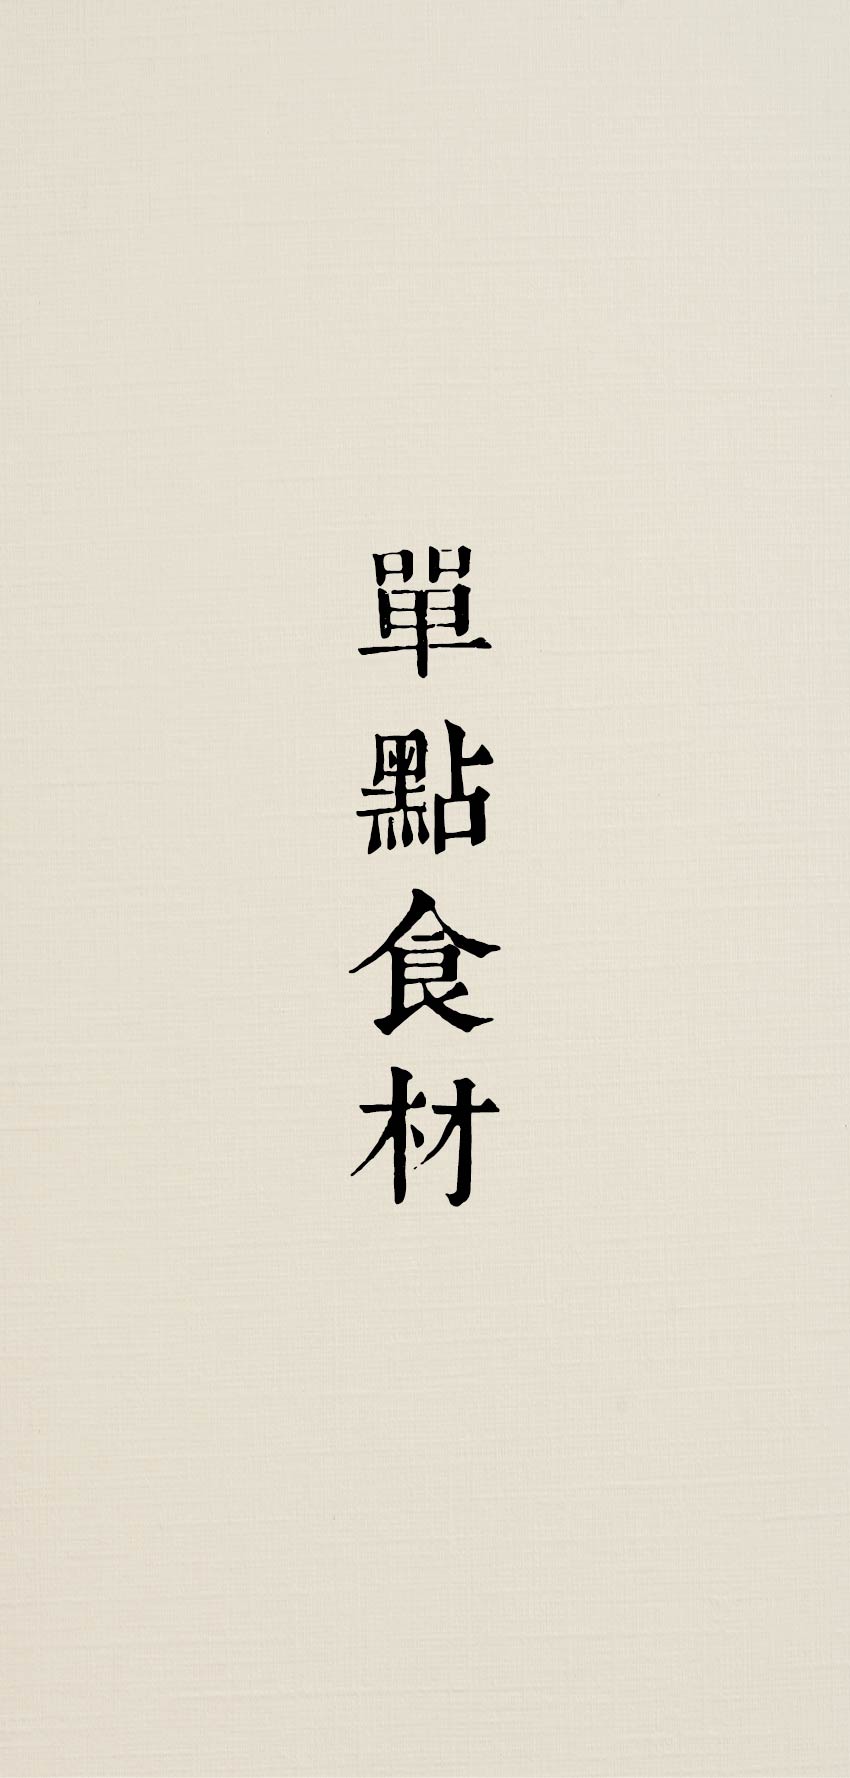 單點食材